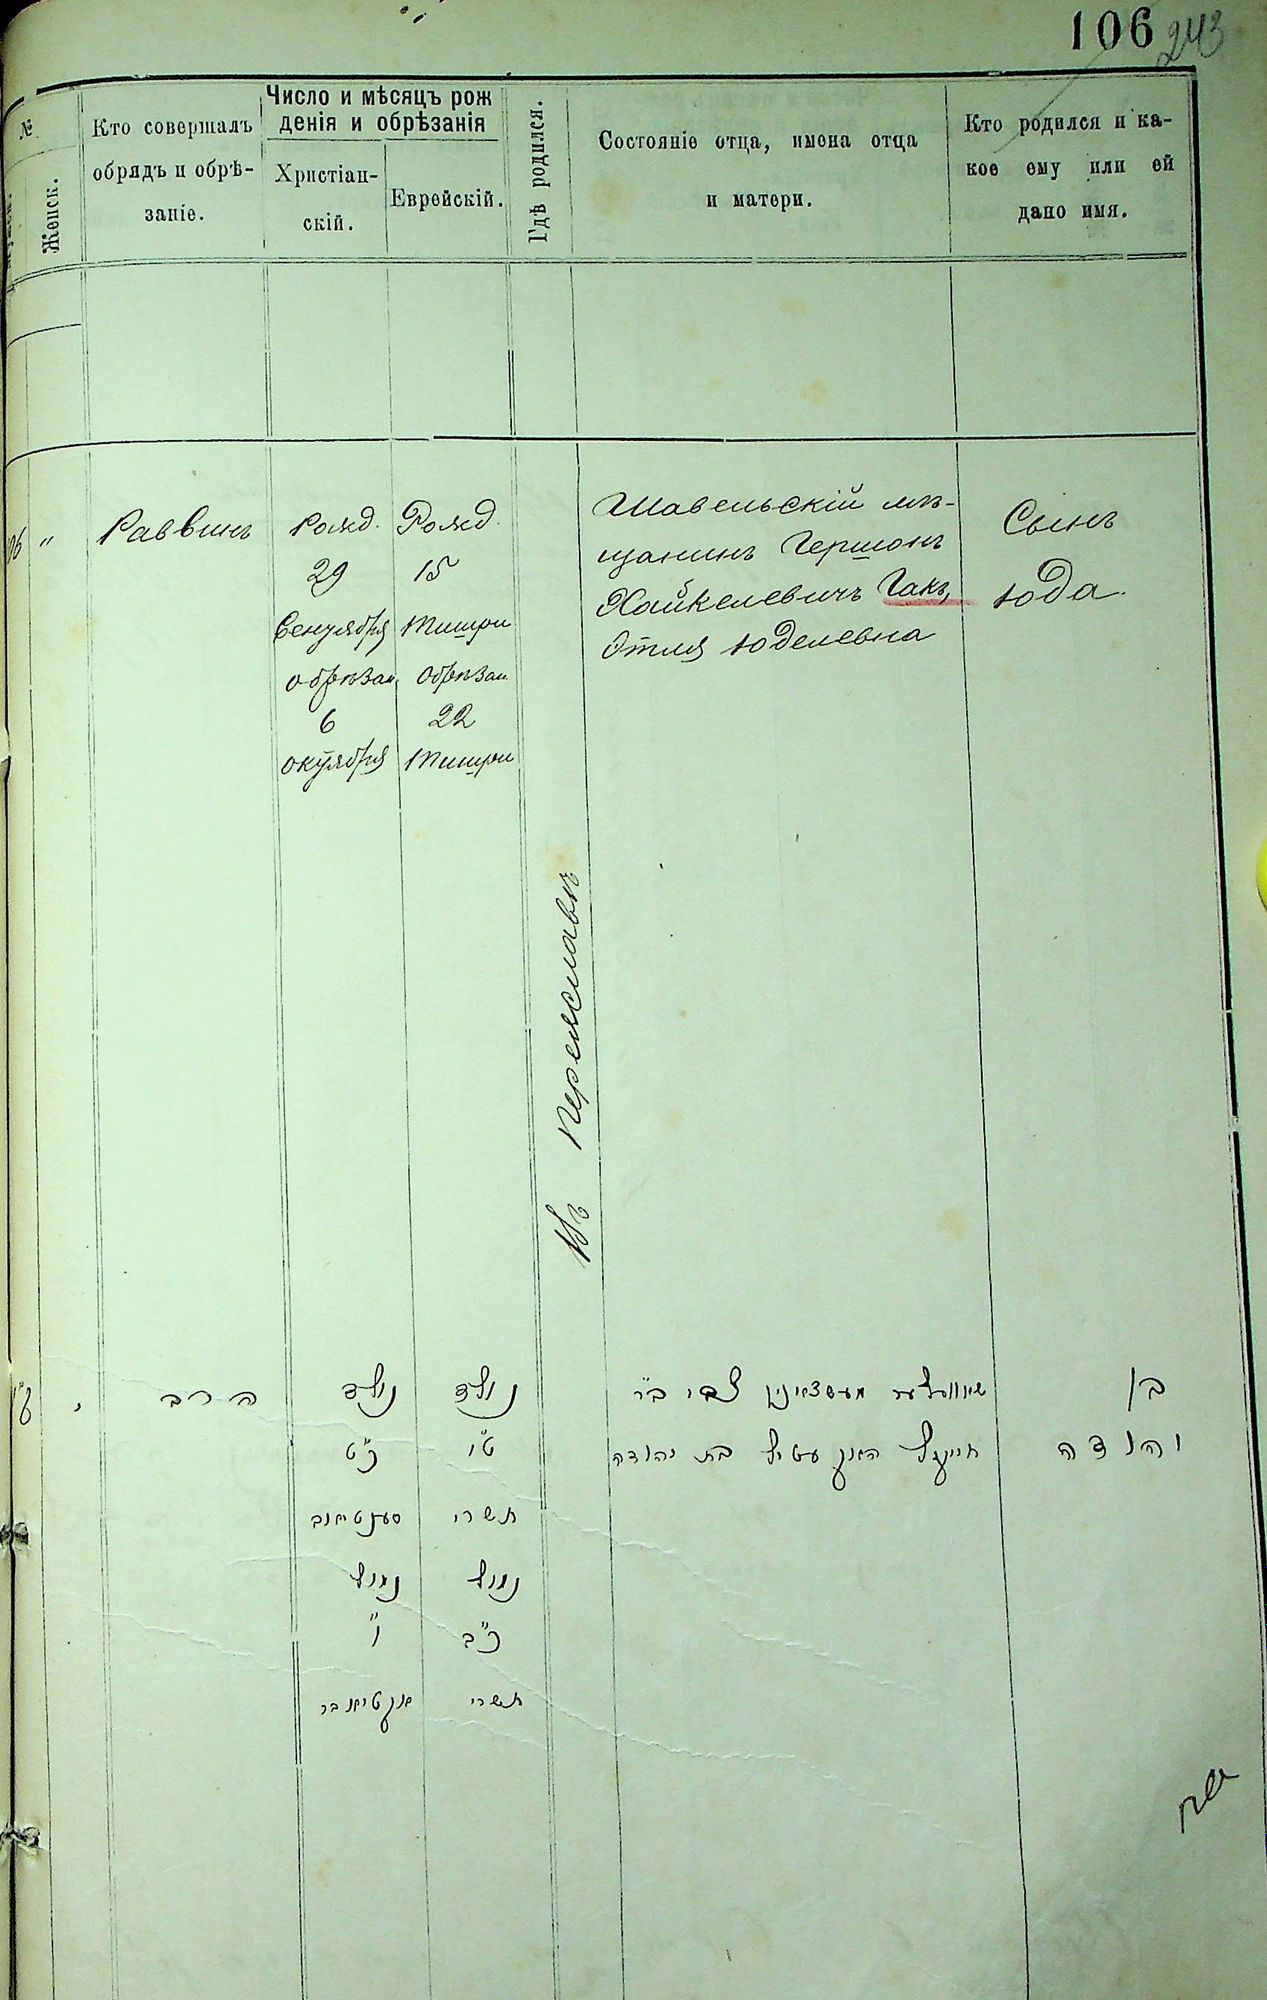 106 243
№
Женск.
Кто совершалъ
обрядъ и обрѣ-
заніе.
Число и мѣсяцъ рож
денія и обрѣзанія
Христіан-
скій.
Еврейскій.
Гдѣ родился.
Состояніе отца, имена отца
и матери.
Кто родился и ка-
кое ему или ей
дано имя.
"
Раввинъ
Рожд.
29
Сентября
обрѣзан
6
октября
Рожд.
15
Тишри
Обрѣзан
22
Тишри
Въ Переяславѣ
Шавельскій мѣ-
щанинъ Гершонъ
Хайкелевичъ Гакъ,
Этля Юделевна
Сынъ
Юда.
הרב
נולד
כ"ט
סענטיאב
נמול
ו"
אקטיאבר
נולד
ט"ו
תשרי
נמול
כ"ב
תשרי
מעשצאנין צבי ב"ר
חייקל האק עטיל בת יהודה
בן
יהודה